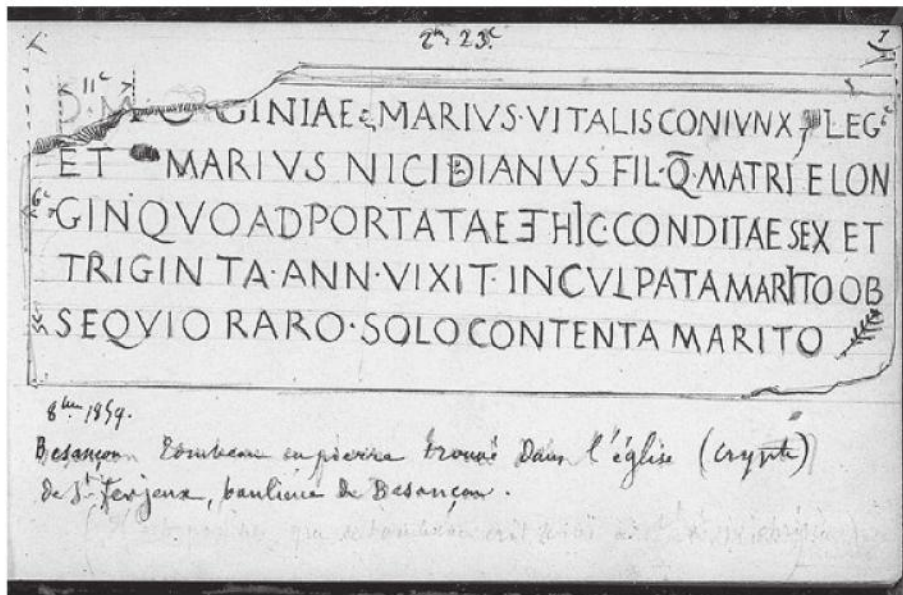 2m. 23c
11c
D. M. GINIAE MARIVS·VITALIS CONIVNX LEG
ET MARIVS NICIDIANVS FIL·Q·MATRI E LON
6c
GINQVO ADPORTATAE ET HIC·CONDITAE SEX ET
TRIGINTA·ANN·VIXIT·INCVLPATA MARITO OB
SEQVIO RARO·SOLO CONTENTA MARITO
8bre 1859.
Besançon Tombeau en pierre trouvé dans l'église (crypte)
de St. Ferjeux, banlieue de Besançon.